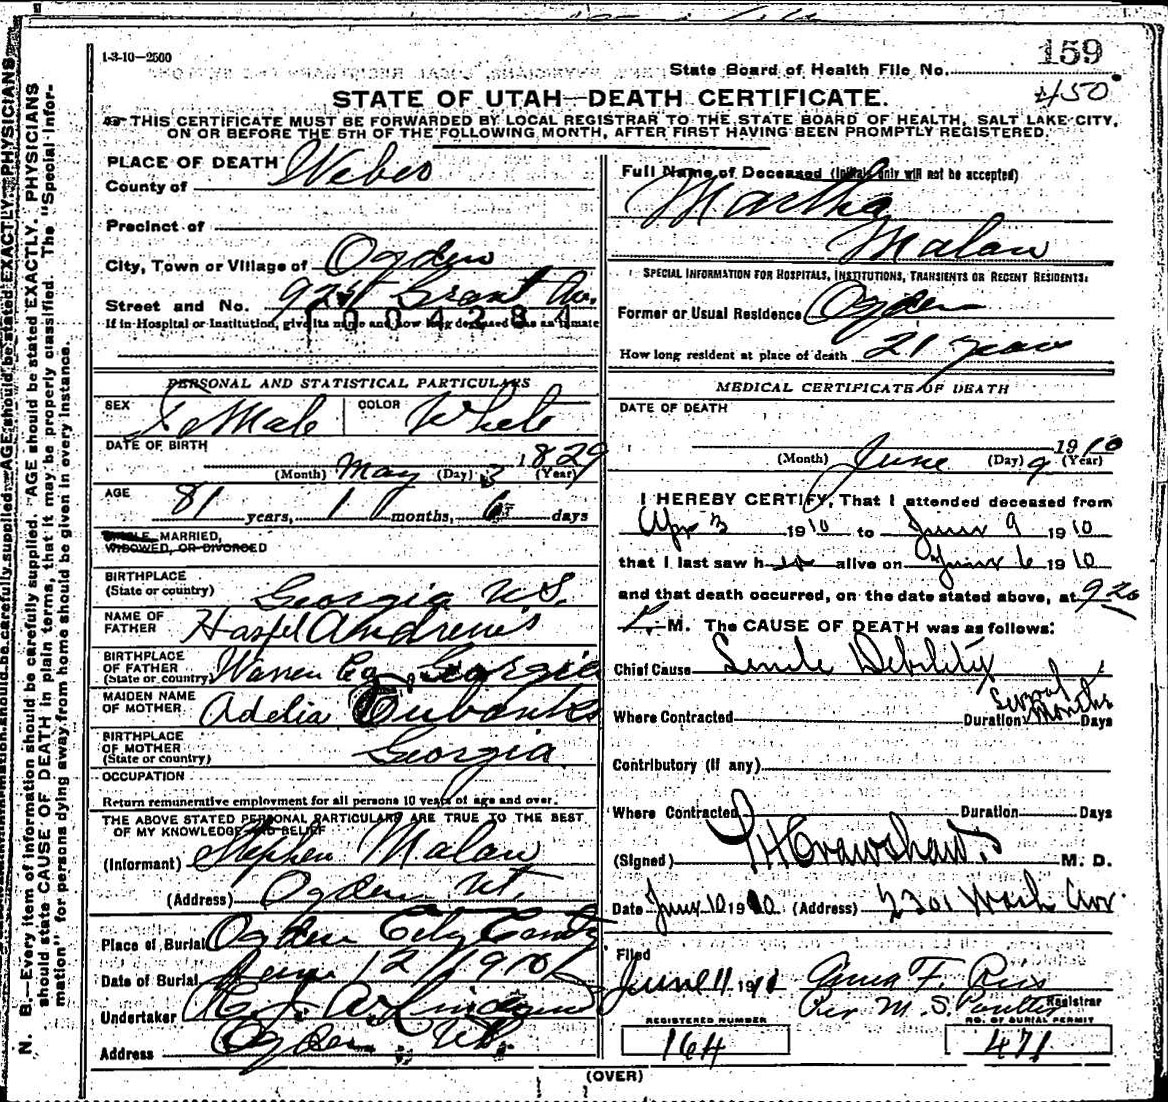 1-3-10—2500
State Board of Health File No. 159
450
STATE OF UTAH—DEATH CERTIFICATE.
THIS CERTIFICATE MUST BE FORWARDED BY LOCAL REGISTRAR TO THE STATE BOARD OF HEALTH, SALT LAKE CITY,
ON OR BEFORE THE 5TH OF THE FOLLOWING MONTH, AFTER FIRST HAVING BEEN PROMPTLY REGISTERED.
N. B.—Every item of information should be carefully supplied. AGE should be stated EXACTLY. PHYSICIANS
should state CAUSE OF DEATH in plain terms, that it may be properly classified. The "Special Infor-
mation" for persons dying away from home should be given in every instance.
PLACE OF DEATH
County of Weber
Precinct of
City, Town or Village of Ogden
Street and No. Grant Av.
If in Hospital or Institution, give its name and how long deceased was an inmate
1004284
PERSONAL AND STATISTICAL PARTICULARS
SEX FeMale COLOR White
DATE OF BIRTH
(Month) May (Day) 3 1829 (Year)
AGE
81 years, 1 months, 6 days
SINGLE, MARRIED,
WIDOWED, OR DIVORCED
BIRTHPLACE
(State or country) Georgia U.S.
NAME OF
FATHER Andrews
BIRTHPLACE
OF FATHER
(State or country) Warren Co, Georgia
MAIDEN NAME
OF MOTHER Adelia Eubanks
BIRTHPLACE
OF MOTHER
(State or country) Georgia
OCCUPATION
Return remunerative employment for all persons 10 years of age and over.
THE ABOVE STATED PERSONAL PARTICULARS ARE TRUE TO THE BEST
OF MY KNOWLEDGE AND BELIEF
(Informant) Stephen Malan
(Address) Ogden Ut.
Place of Burial Ogden City
Date of Burial June 12/1910
Undertaker
Address Ogden Ut.
Full Name of Deceased (Initials only will not be accepted)
Martha
Malan
SPECIAL INFORMATION FOR HOSPITALS, INSTITUTIONS, TRANSIENTS OR RECENT RESIDENTS:
Former or Usual Residence Ogden
How long resident at place of death 21 years
MEDICAL CERTIFICATE OF DEATH
DATE OF DEATH
1910
(Month) June (Day) 9 (Year)
I HEREBY CERTIFY, That I attended deceased from
Apr 3 1910 to June 9 1910
that I last saw her alive on June 6 1910
and that death occurred, on the date stated above, at 9 20
P. M. The CAUSE OF DEATH was as follows:
Chief Cause Senile Debility
Where Contracted Duration Several Months Days
Contributory (if any)
Where Contracted Duration Days
(Signed) Crawshaw M. D.
Date June 10 1910 (Address) 2301 Wash Ave.
Filed
June 11 1910 Anna F. Ries
Per M. S. Registrar
REGISTERED NUMBER
164
NO. OF BURIAL PERMIT
471
(OVER)